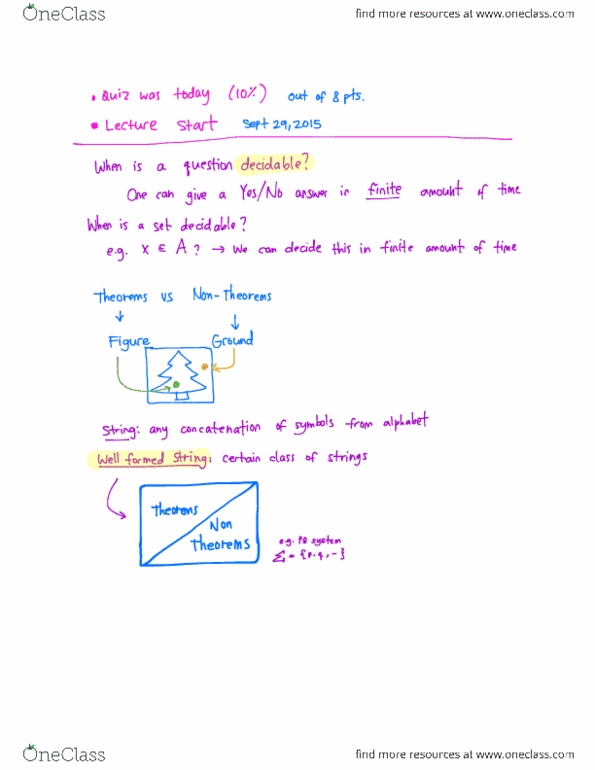 OneClass find more resources at www.oneclass.com
• Quiz was today (10%) out of 8 pts.
• Lecture start Sept 29, 2015
When is a question decidable?
One can give a Yes/No answer in finite amount of time
When is a set decidable?
e.g. x ∈ A? → We can decide this in finite amount of time
Theorems vs Non-Theorems
↓ ↓
Figure Ground
String: any concatenation of symbols from alphabet
Well formed string: certain class of strings
Theorems
Non
Theorems
e.g. PQ system
Σ = {p, q, -}
OneClass find more resources at www.oneclass.com